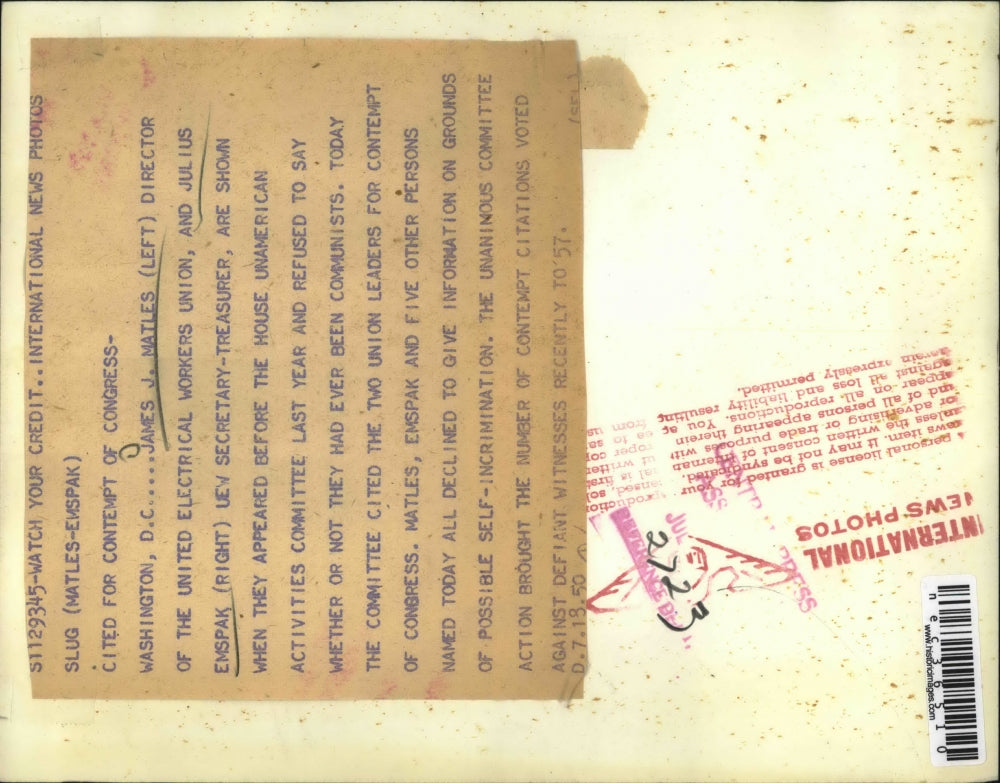 S1129345-WATCH YOUR CREDIT..INTERNATIONAL NEWS PHOTOS
SLUG (MATLES-EMSPAK)
CITED FOR CONTEMPT OF CONGRESS-
WASHINGTON, D.C.....JAMES J. MATLES (LEFT) DIRECTOR
OF THE UNITED ELECTRICAL WORKERS UNION, AND JULIUS
EMSPAK (RIGHT) UEW SECRETARY-TREASURER, ARE SHOWN
WHEN THEY APPEARED BEFORE THE HOUSE UNAMERICAN
ACTIVITIES COMMITTEE LAST YEAR AND REFUSED TO SAY
WHETHER OR NOT THEY HAD EVER BEEN COMMUNISTS. TODAY
THE COMMITTEE CITED THE TWO UNION LEADERS FOR CONTEMPT
OF CONGRESS. MATLES, EMSPAK AND FIVE OTHER PERSONS
NAMED TODAY ALL DECLINED TO GIVE INFORMATION ON GROUNDS
OF POSSIBLE SELF-INCRIMINATION. THE UNANIMOUS COMMITTEE
ACTION BROUGHT THE NUMBER OF CONTEMPT CITATIONS VOTED
AGAINST DEFIANT WITNESSES RECENTLY TO 57.
D.7.13.50
INTERNATIONAL
NEWS PHOTOS
personal license is granted for your
news item. It may not be syndicated,
unless the written consent of
or advertising or trade purposes with
and of all persons appearing therein
appear on all reproductions. You
against all loss and liability resulting
herein expressly permitted.
JUL
2723
PRESS
n e c 3 6 5 1 0
www.historicimages.com